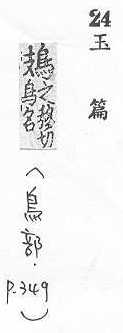 24 玉篇
之務切
鳥名
(鳥部. p.349)